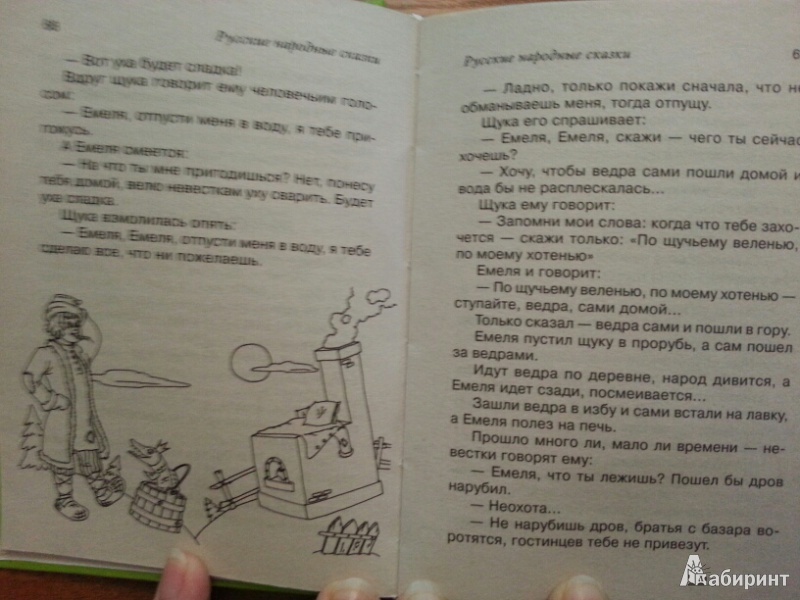 Русские народные сказки
— Вот уха будет сладка!
Вдруг щука говорит ему человечьим голо-
сом:
— Емеля, отпусти меня в воду, я тебе при-
гожусь.
А Емеля смеется:
— На что ты мне пригодишься? Нет, понесу
тебя домой, велю невесткам уху сварить. Будет
уха сладка.
Щука взмолилась опять:
— Емеля, Емеля, отпусти меня в воду, я тебе
сделаю все, что ни пожелаешь.
Русские народные сказки
6
— Ладно, только покажи сначала, что не
обманываешь меня, тогда отпущу.
Щука его спрашивает:
— Емеля, Емеля, скажи — чего ты сейчас
хочешь?
— Хочу, чтобы ведра сами пошли домой и
вода бы не расплескалась...
Щука ему говорит:
— Запомни мои слова: когда что тебе захо-
чется — скажи только: «По щучьему веленью,
по моему хотенью»
Емеля и говорит:
— По щучьему веленью, по моему хотенью —
ступайте, ведра, сами домой...
Только сказал — ведра сами и пошли в гору.
Емеля пустил щуку в прорубь, а сам пошел
за ведрами.
Идут ведра по деревне, народ дивится, а
Емеля идет сзади, посмеивается...
Зашли ведра в избу и сами встали на лавку,
а Емеля полез на печь.
Прошло много ли, мало ли времени — не-
вестки говорят ему:
— Емеля, что ты лежишь? Пошел бы дров
нарубил.
— Неохота...
— Не нарубишь дров, братья с базара во-
ротятся, гостинцев тебе не привезут.
Лабиринт